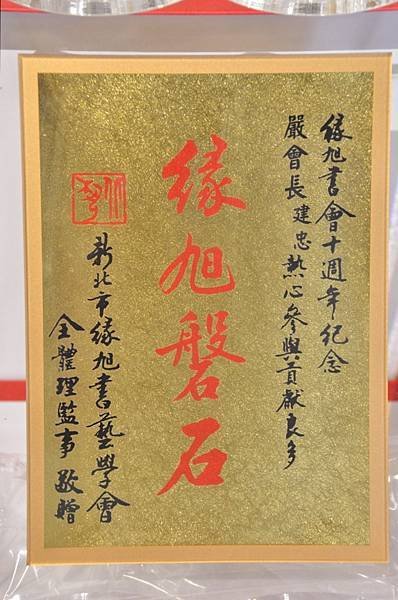 緣旭書會十週年紀念
嚴會長建忠熱心參與貢獻良多
緣旭磐石
新北市緣旭書藝學會
全體理監事敬贈